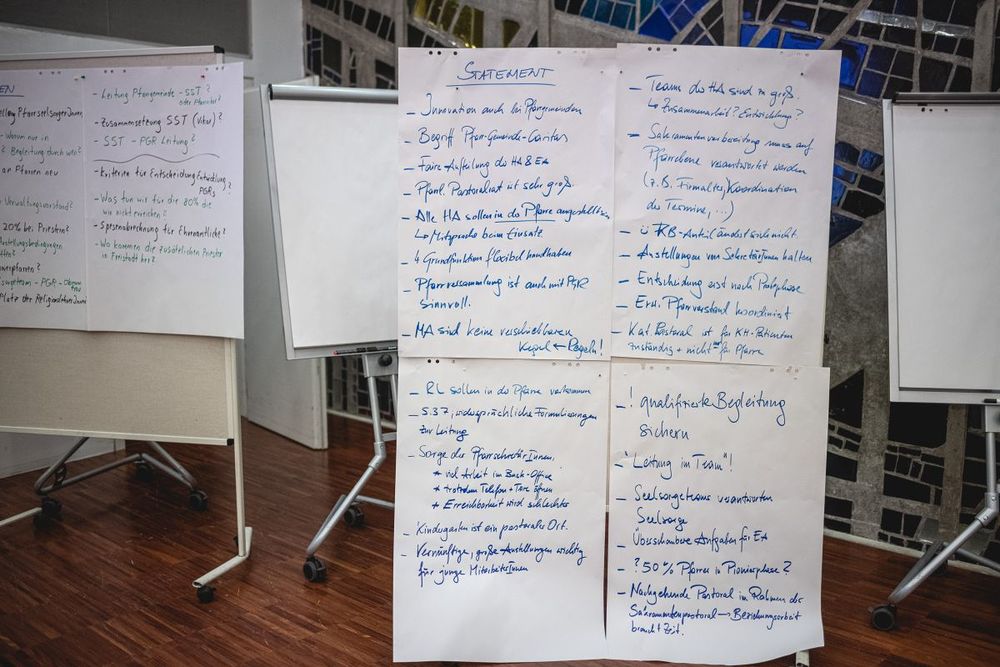 EN
Pfarrseelsorger:innen
- Warum nur in
Begleitung durch wen?
an Pfarren neu
Verwaltungsvorstand?
20% bei Priestern?
Anstellungsbedingungen
- PGR -
Platz der Religionslehrer:innen
- Leitung Pfarrgemeinde - SST?
oder Pfarrbüro?
- Zusammensetzung SST (Vikar)?
- SST - PGR Leitung?
- Kriterien für Entscheidung Entwicklung
PGRs?
- Was tun wir für die 80% die
wir nicht erreichen?
- Spesenabrechnung für Ehrenamtliche?
- Wo kommen die zusätzlichen Priester
in Freistadt her?
STATEMENT
- Innovation auch bei Pfarrgemeinden
- Begriff Pfarr-Gemeinde-Caritas
- Faire Aufteilung der HA & EA
- Pfarrl. Pastoralrat ist sehr groß.
- Alle HA sollen in der Pfarre angestellt sein
↳ Mitsprache beim Einsatz
- 4 Grundfunktion flexibel handhaben
- Pfarrversammlung ist auch mit PGR
sinnvoll.
- HA sind keine verschiebbaren
Kegel ← Regeln!
- Teams der HA sind zu groß.
↳ Zusammenarbeit? Entwicklung?
- Sakramentenvorbereitung muss auf
Pfarrebene verantwortet werden
(z.B. Firmalter, Koordination
der Termine, ...)
- ü KB-Anteil ändert sich nicht.
- Anstellungen von SekretärInnen halten
- Entscheidung erst nach Probephase
- Erw. Pfarrvorstand koordiniert
- Kat. Pastoral ist für KH-Patienten
zuständig + nicht nur für Pfarre
- RL sollen in der Pfarre vorkommen
- S.37; widersprüchliche Formulierungen
zur Leitung
- Sorge der PfarrsekretärInnen,
* viel Arbeit im Back-Office
* trotzdem Telefon + Türe öffnen
* Erreichbarkeit wird schlechter
- Kindergarten ist ein pastoraler Ort.
- Vernünftige, große Anstellungen wichtig
für junge MitarbeiterInnen
- ! qualifizierte Begleitung
sichern
- "Leitung im Team"!
- Seelsorgeteams verantworten
Seelsorge
- Überschaubare Aufgaben für EA
- ? 50% Pfarrer in Pionierphase?
- Nachgehende Pastoral im Rahmen der
Sakramentenpastoral → Beziehungsarbeit
braucht Zeit.